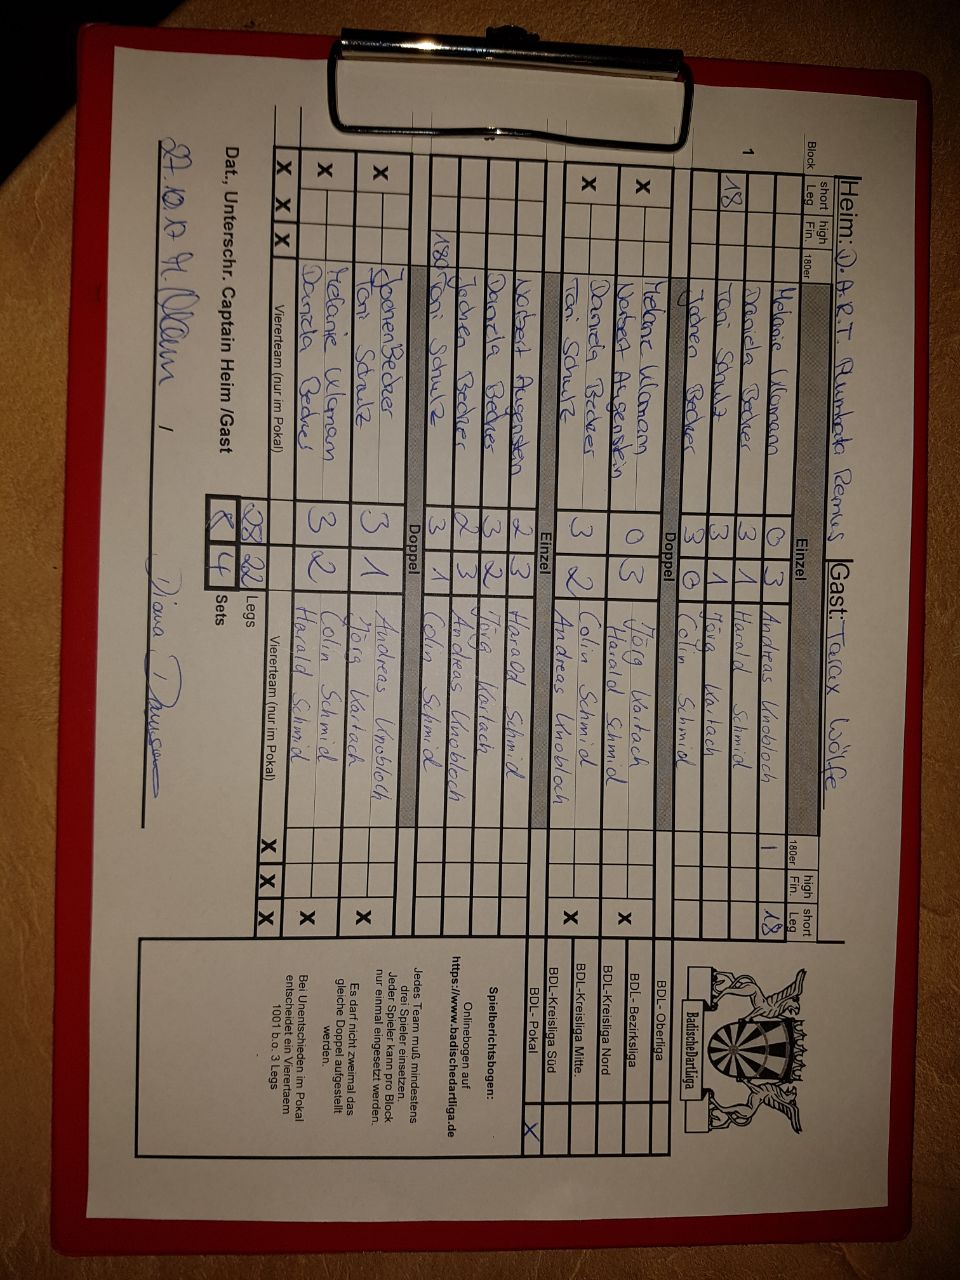 Heim: D.A.R.T. Remus Gast: Tarax Wölfe
Block short Leg high Fin. 180er Einzel 180er high Fin. short Leg
1 Melanie Ullmann 0 3 Andreas Knobloch 1 18
Daniela Becker 3 1 Harald Schmid
18 Toni Schulz 3 1 Jörg Kartach
Jochen Becker 3 0 Colin Schmid
Doppel
X Melanie Ullmann 0 3 Jörg Kartach X
Norbert Augenstein Harald Schmid
X Daniela Becker 3 2 Colin Schmid X
Toni Schulz Andreas Knobloch
Einzel
Norbert Augenstein 2 3 Harald Schmid
Daniela Becker 3 2 Jörg Kartach
Jochen Becker 2 3 Andreas Knobloch
180 Toni Schulz 3 1 Colin Schmid
Doppel
X Jochen Becker 3 1 Andreas Knobloch X
Toni Schulz Jörg Kartach
X Melanie Ullmann 3 2 Colin Schmid X
Daniela Becker Harald Schmid
X X X Viererteam (nur im Pokal) Viererteam (nur im Pokal) X X X
28 22 Legs
8 4 Sets
Dat., Unterschr. Captain Heim /Gast
27.10.17 M. Ullmann /
BadischeDartLiga
BDL - Oberliga
BDL - Bezirksliga
BDL-Kreisliga Nord
BDL-Kreisliga Mitte.
BDL-Kreisliga Süd
BDL - Pokal X
Spielberichtsbogen:
Onlinebogen auf
https://www.badischedartliga.de
Jedes Team muß mindestens
drei Spieler einsetzen.
Jeder Spieler kann pro Block
nur einmal eingesetzt werden.
Es darf nicht zweimal das
gleiche Doppel aufgestellt
werden.
Bei Unentschieden im Pokal
entscheidet ein Vierertaem
1001 b.o. 3 Legs